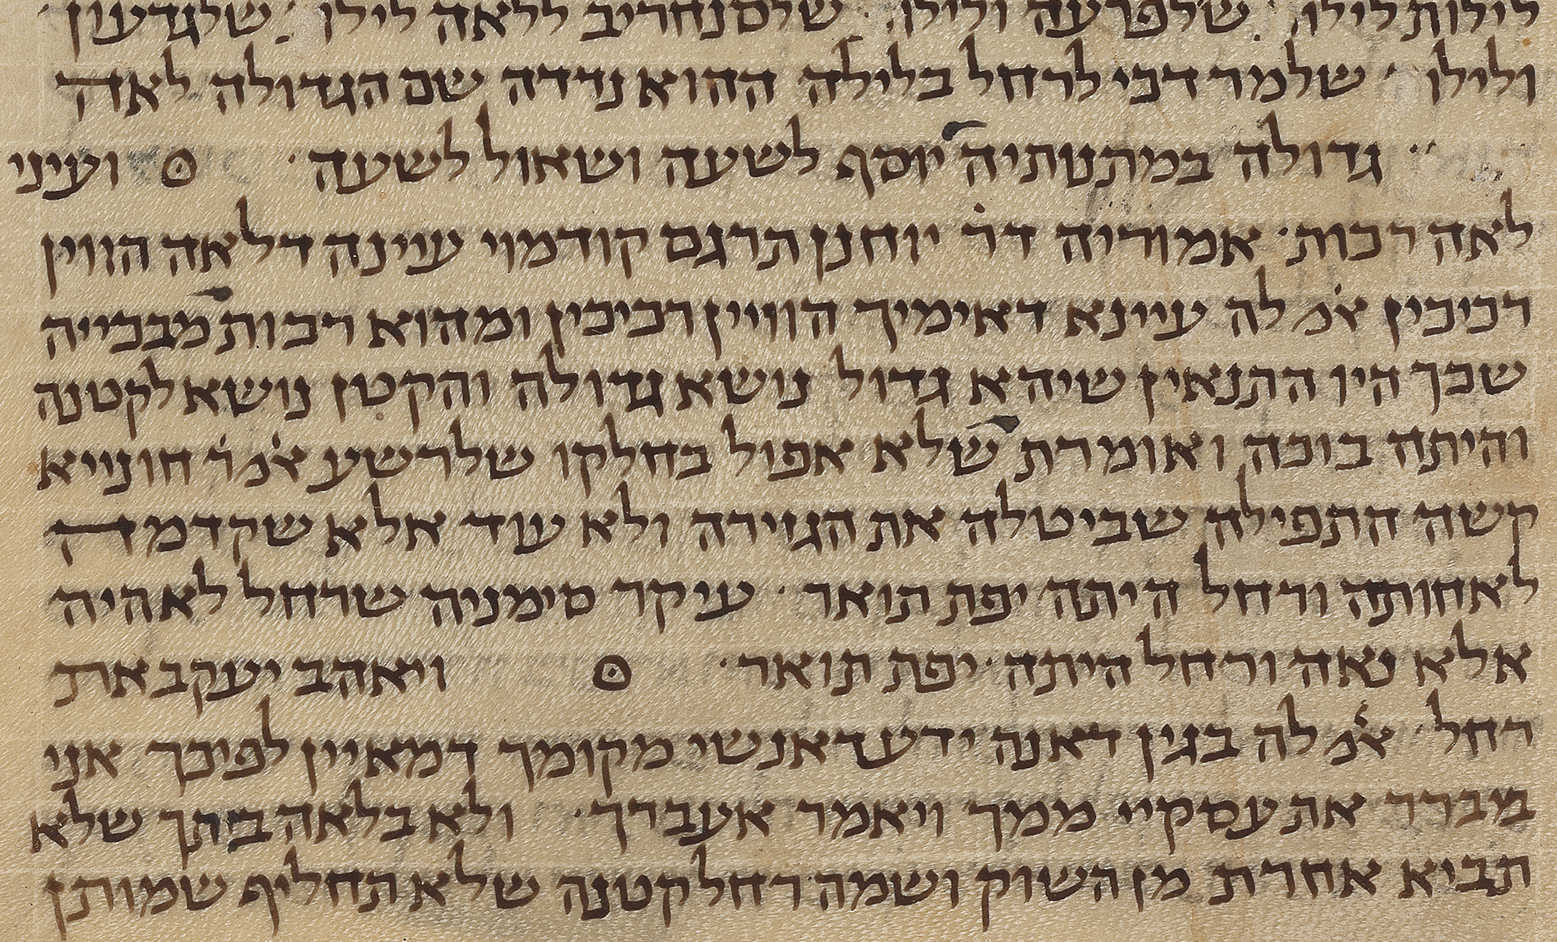 לילות לילו · שלפרעה ולילו · שלסנחריב ללאה לילו · שלגדעון
ולילו · שלמרדכי לרחל בלילה ההוא נדדה שם הגדולה לאה
גדולה במתנותיה יוסף לשעה ושאול לשעה · ⊙ ועיני
לאה רכות · אמוריה דר׳ יוחנן תרגם קודמוי עיינה דלאה הווין
רכיכין א׳מ׳ לה עיינא דאימיך הוויין רכיכין ומהוא רכות מבכייה
שכך היו התנאין שיהא גדול נושא גדולה והקטן נושא לקטנה
והיתה בוכה ואומרת שלא אפול בחלקו שלרשע א׳מ׳ר׳ חונייא
קשה התפילה שביטלה את הגזירה ולא עוד אלא שקדמה
לאחותה ורחל היתה יפת תואר · עיקר סימניה שרחל לא היה
אלא נאה ורחל היתה יפת תואר · ⊙ ויאהב יעקב את
רחל · א׳מ׳ לה בגין דאנה ידע דאנשי מקומך רמאיין לפיכך אני
מברר את עסקיי ממך ויאמר אעבדך · ולא בלאה בתך שלא
תביא אחרת מן השוק ושמה רחל קטנה שלא תחליף שמותן